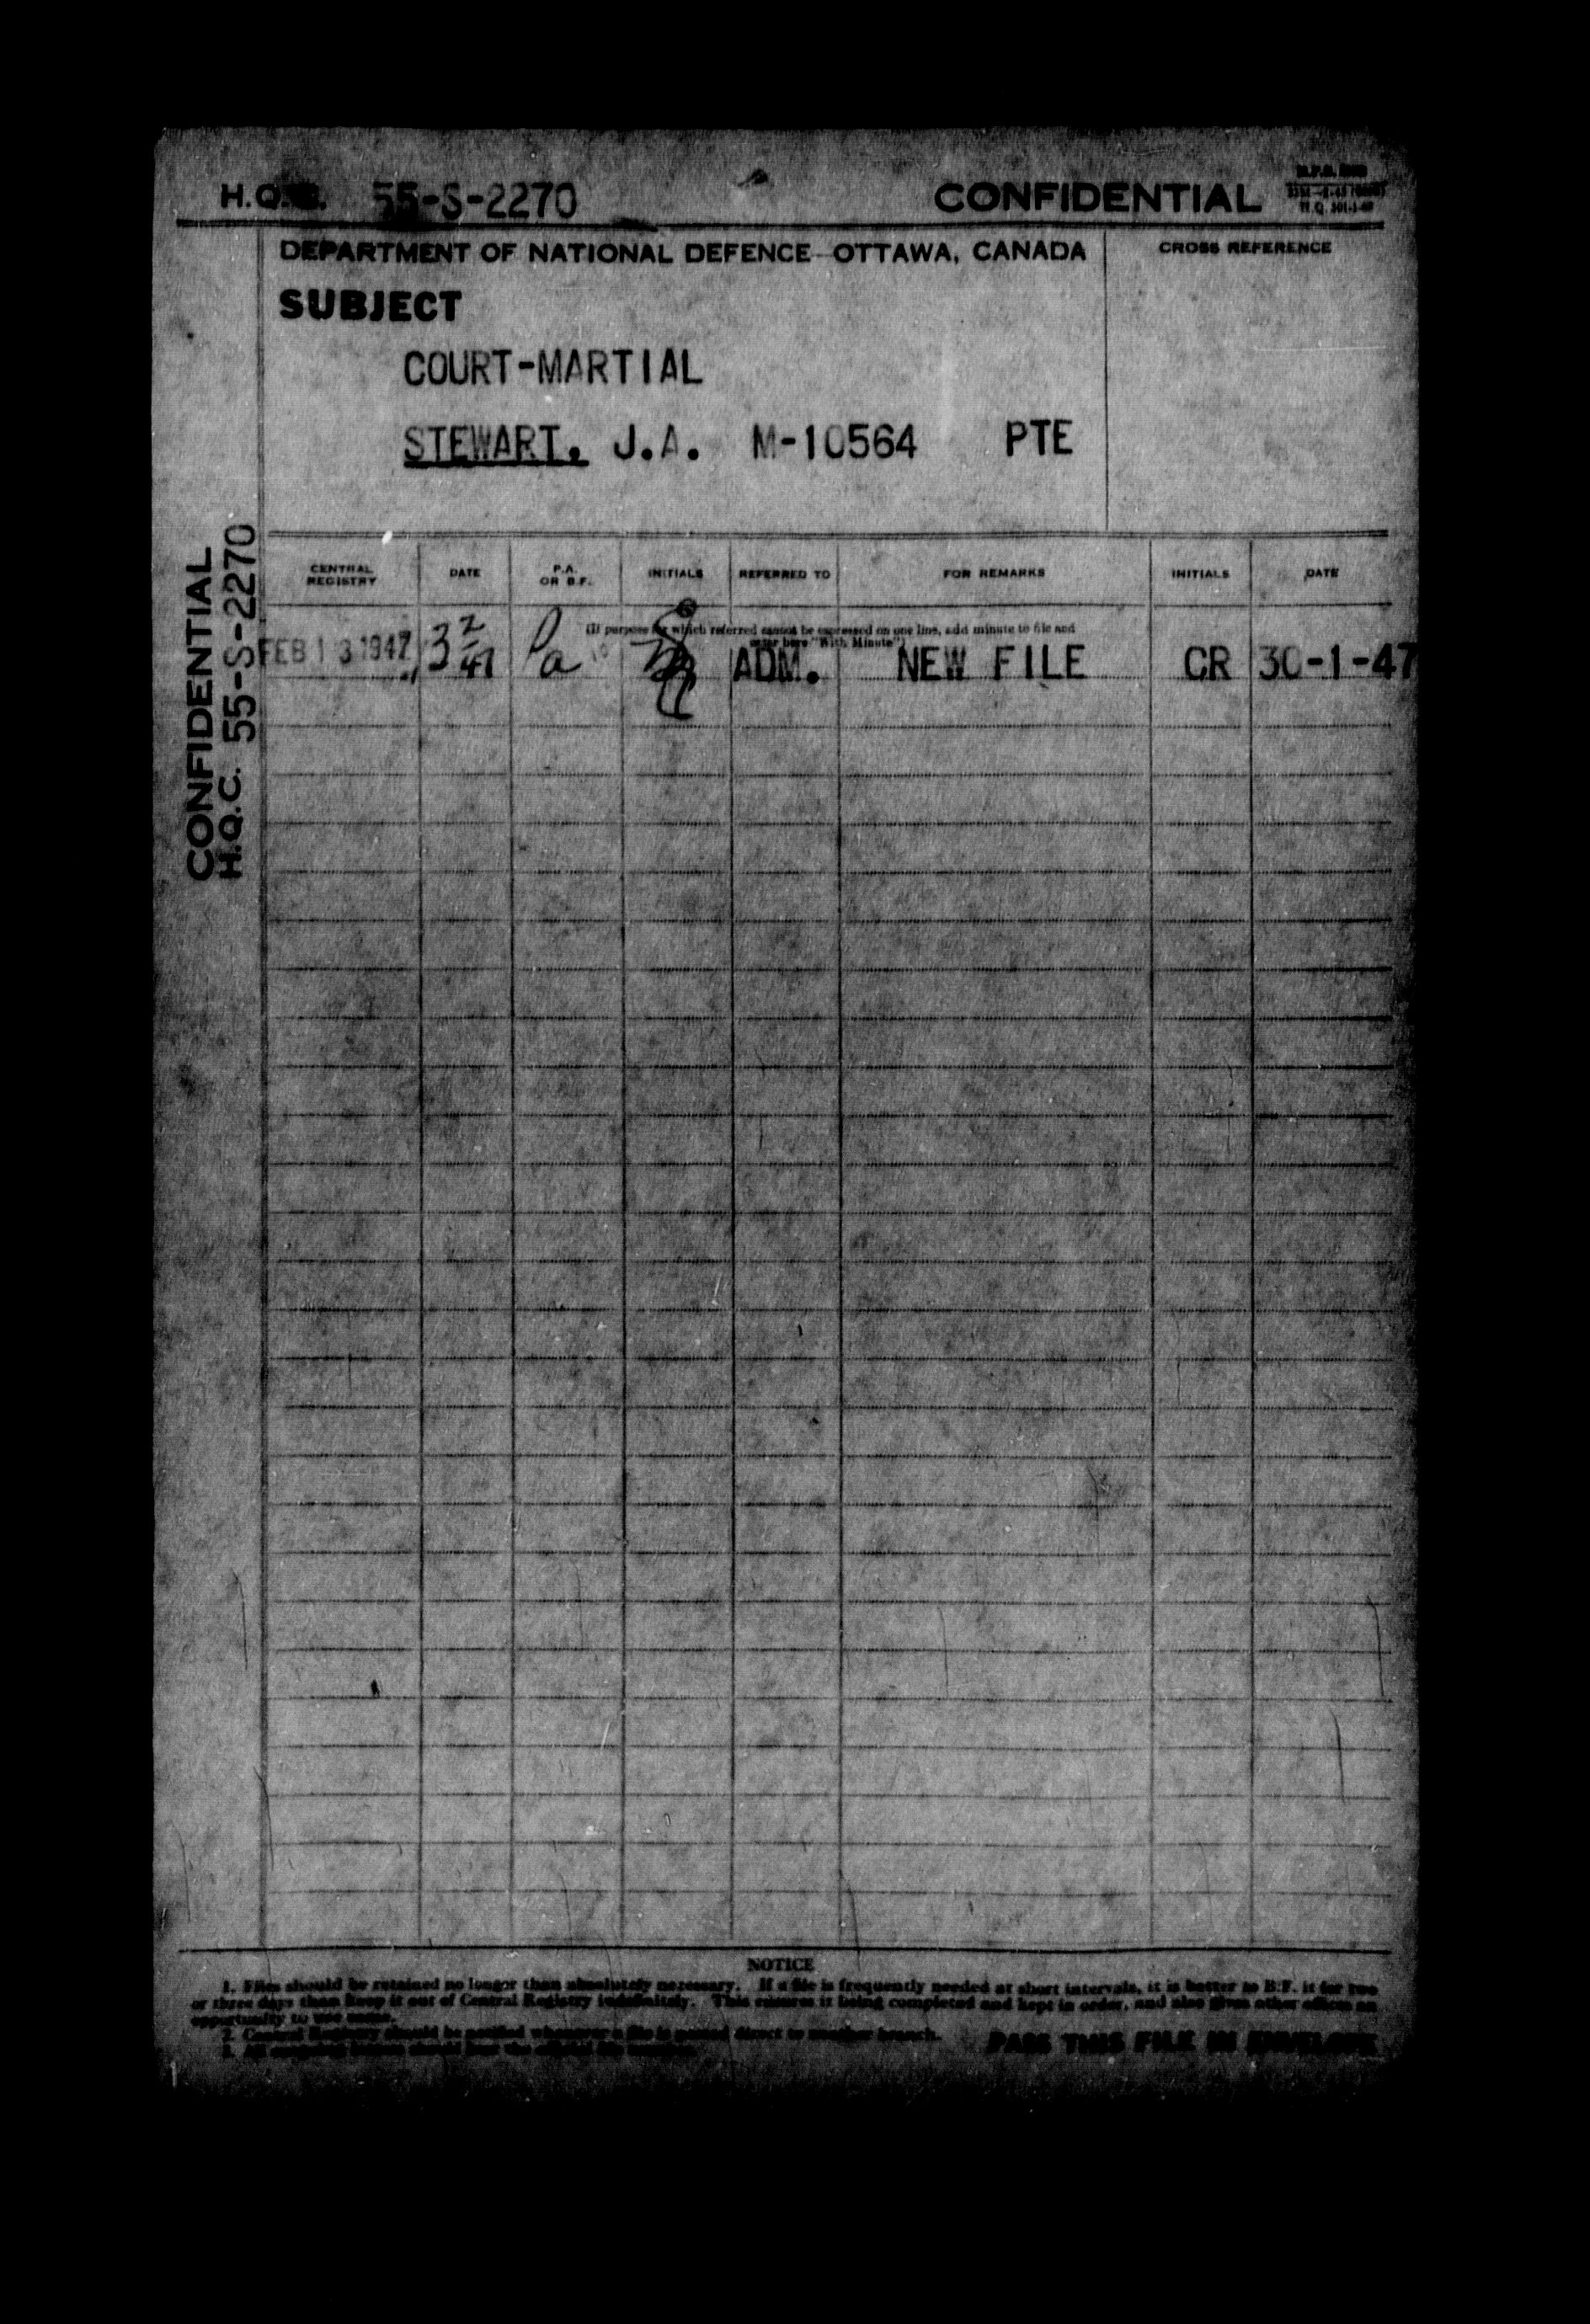 H.Q. 55-S-2270 CONFIDENTIAL
DEPARTMENT OF NATIONAL DEFENCE OTTAWA, CANADA
CROSS REFERENCE
SUBJECT
COURT-MARTIAL
STEWART, J.A. M-10564 PTE
CONFIDENTIAL
H.Q.C. 55-S-2270
CENTRAL REGISTRY DATE P.A. OR B.F. INITIALS REFERRED TO FOR REMARKS INITIALS DATE
(If purpose for which referred cannot be expressed on one line, add minute to file and
enter here "With Minute")
FEB 13 1947 3 2/47 Pa ADM. NEW FILE CR 30-1-47
NOTICE
1. Files should be retained no longer than absolutely necessary. If a file is frequently needed at short intervals, it is better to B.F. it for two
or three days than keep it out of Central Registry indefinitely. This ensures it being completed and kept in order, and also gives other offices an
opportunity to use same.
2. Central Registry should be notified whenever a file is passed direct to another branch.
PASS THIS FILE IN ENVELOPE